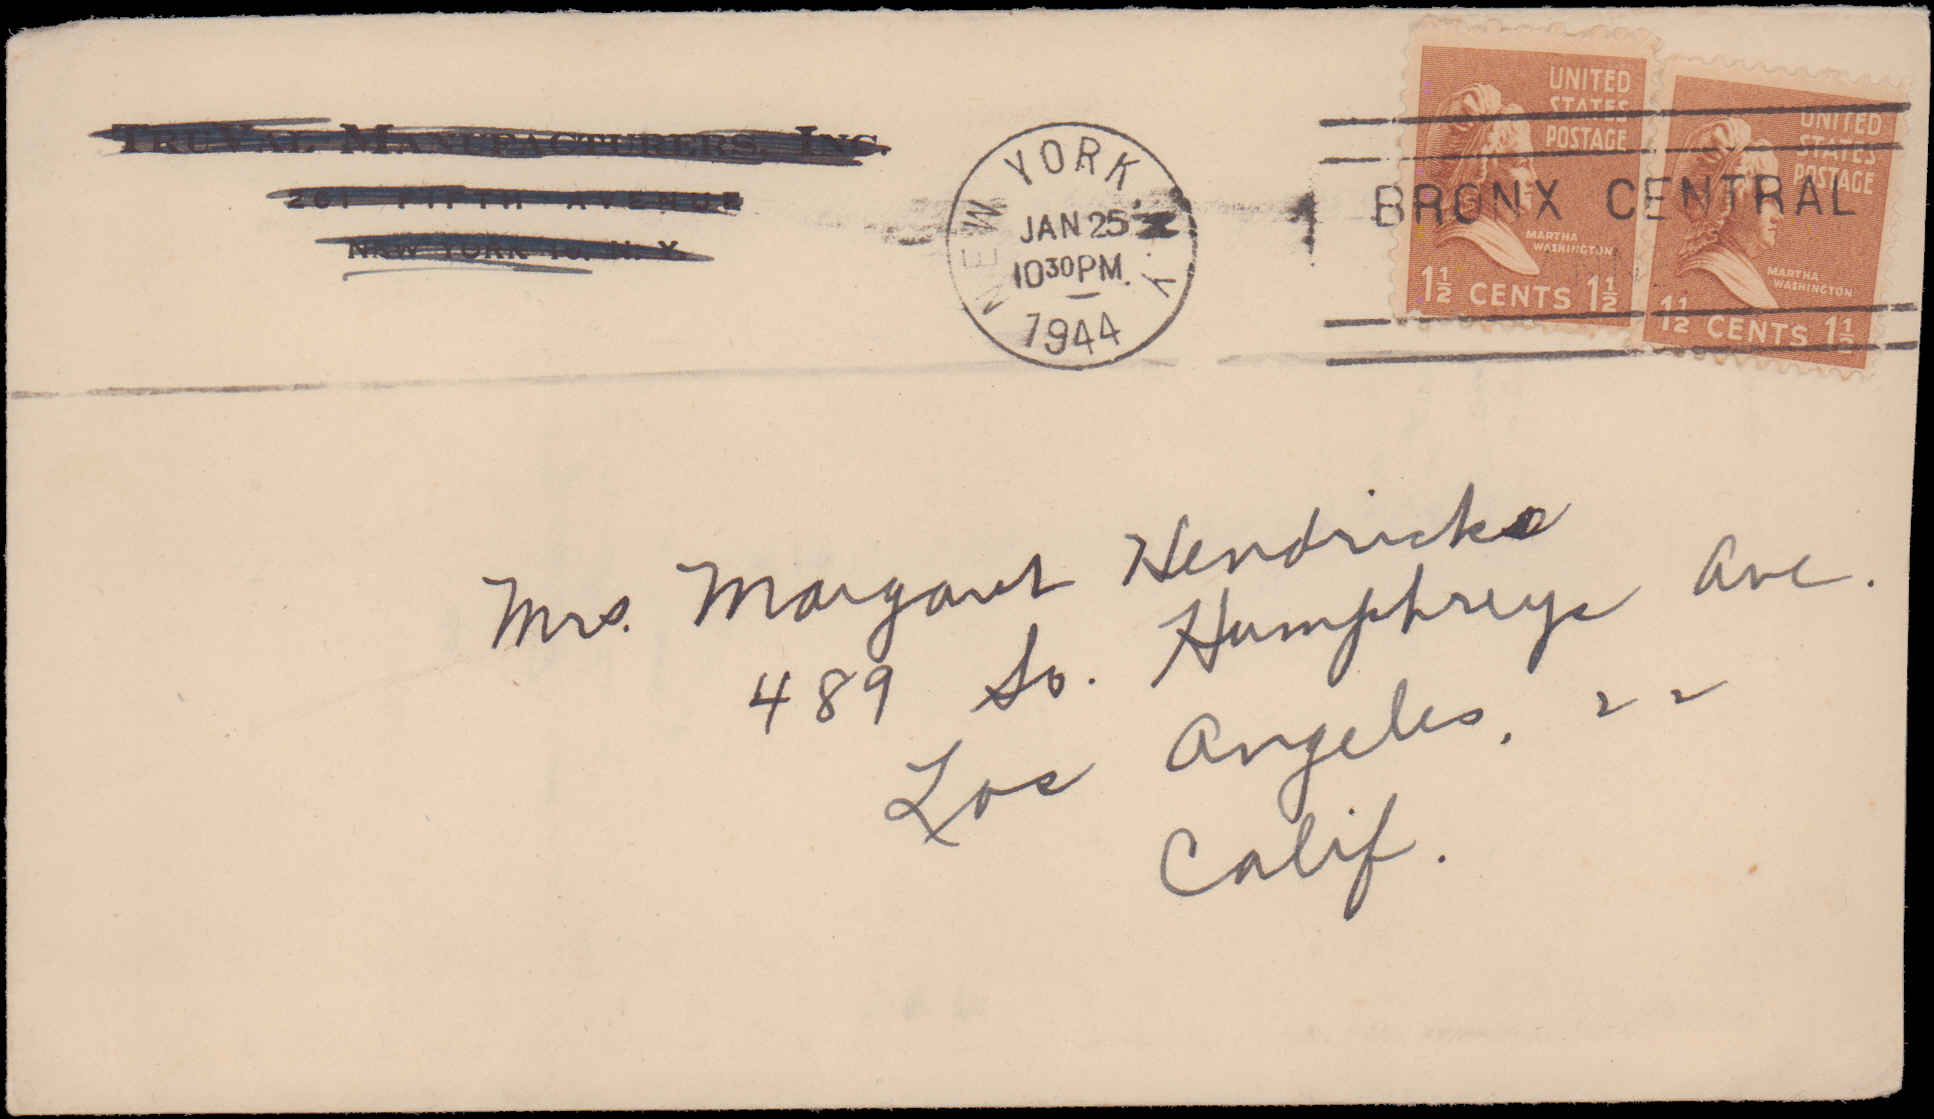 TRUVAL MANUFACTURERS, INC.
261 FIFTH AVENUE
NEW YORK 16, N. Y.
NEW YORK, N.Y.
JAN 25
10 30 PM
1944
1
BRONX CENTRAL
UNITED
STATES
POSTAGE
MARTHA
WASHINGTON
1½ CENTS 1½
UNITED
STATES
POSTAGE
MARTHA
WASHINGTON
1½ CENTS 1½
Mrs. Margaret Hendricks
489 So. Humphreys Ave.
Los Angeles, 22
Calif.